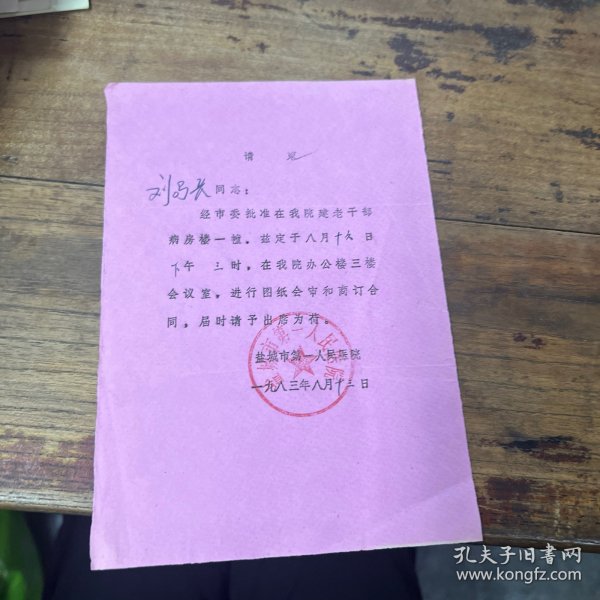 请 柬
刘局长同志：
经市委批准在我院建老干部
病房楼一幢。兹定于八月十九日
下午 三时，在我院办公楼三楼
会议室，进行图纸会审和商订合
同，届时请予出席为荷。
盐城市第一人民医院
一九八三年八月十三日
盐城市第一人民医院
孔夫子旧书网
www.kongfz.com